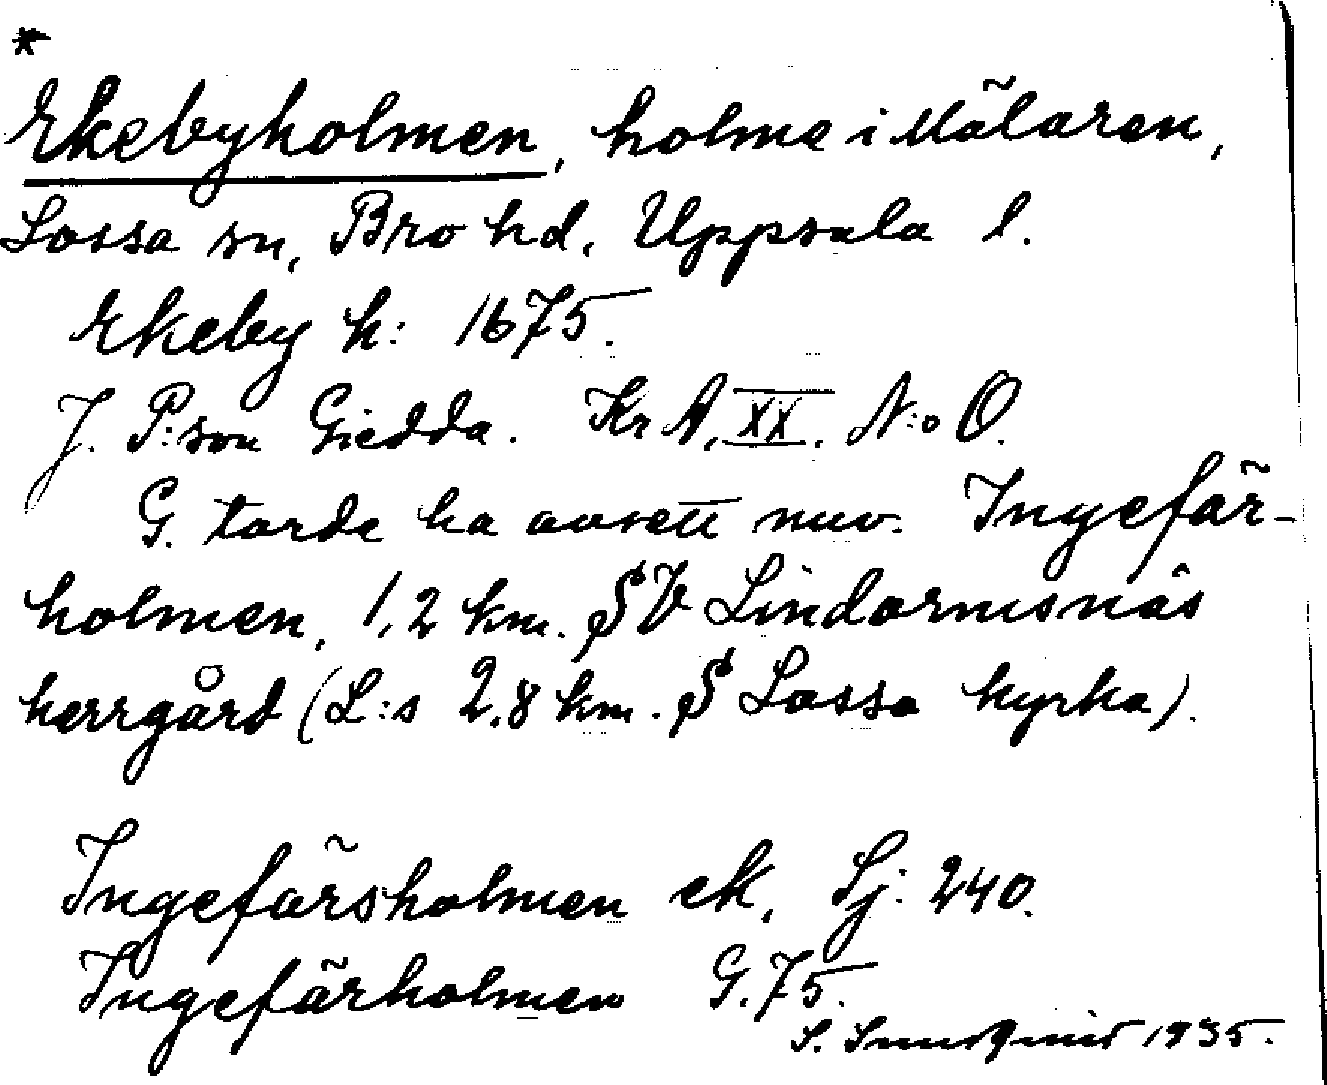 *
Ekebyholmen, holme i Mälaren,
Lossa sn, Bro hd, Uppsala l.
Ekeby h: 1675.
J. P:son Giedda. Kr A, XX, N:o O.
G. torde ha avsett nuv. Ingefär-
holmen, 1,2 km. S V Lindormsnäs
herrgård (L:s 2,8 km. S Lossa kyrka).
Ingefärsholmen ek, Sj: 240.
Ingefärholmen G. 75.
S. 1935.